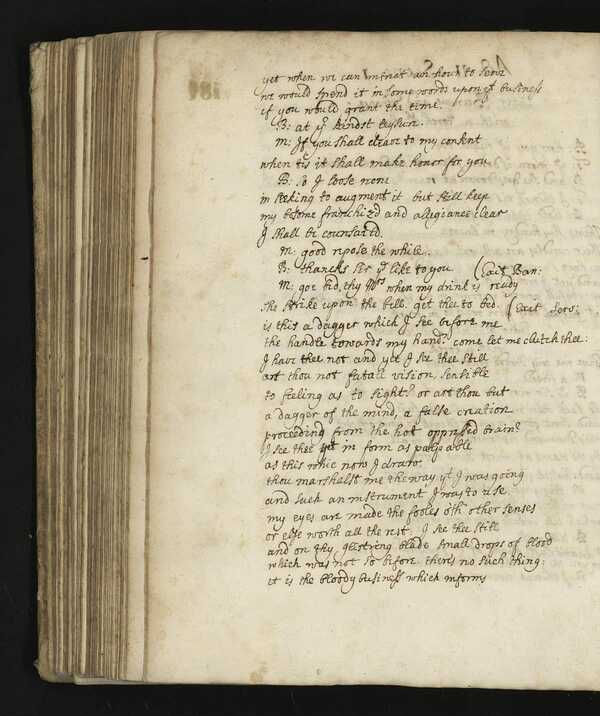 yet when we can intreat an hour to serve
we would spend it in some words upon yt business
if you would grant the time.
B: at yr kindst leysure.
m: If you shall cleave to my consent
when tis it shall make honor for you
B: so I loose none
in seeking to augment it but still keep
my bosome franchizd and allegiance clear
I shall be counsaild.
m: good repose the while.
B: thancks Sir ye like to you (Exit Ban:
m: goe bid, thy Mrs when my drink is ready
she strike upon the bell. get thee to bed. (Exit Serv:
is this a dagger which I see before me
the handle towards my hand? come let me clutch thee:
I have thee not and yet I see thee still
art thou not fatall vision, sensible
to feeling as to sight? or art thou but
a dagger of the mind, a false creation
proceeding from the hot opprssed brain?
I see thee yet in form as palpable
as this whic now I draw
thou marshalst me the way yt I was going
and such an instrument I was to use
my eyes are made the fooles oth other senses
or else worth all the rest. I see thee still
and on thy blade small drops of blood
which was not so before. there's no such thing:
it is the bloody business which informs